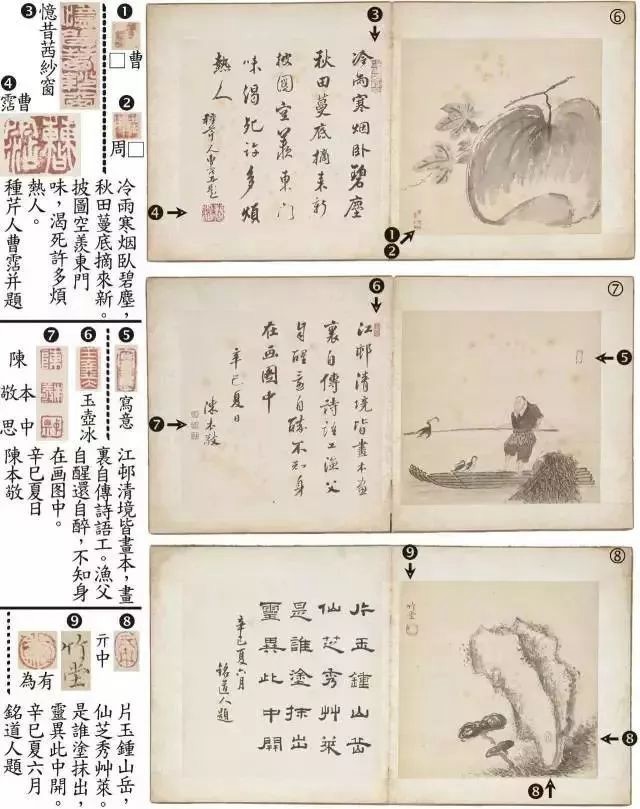 ❶
曹□
❷
□周
❸
憶昔茜紗窗
❹
曹霑
冷雨寒烟臥碧塵，
秋田蔓底摘來新。
披圖空羨東門
味，渴死許多煩
熱人。
種芹人曹霑并題
❺
寫意
❻
玉壺冰
❼
陳
本敬
中思
江邨清境皆畫本，畫
裏自傳詩語工。漁父
自醒還自醉，不知身
在画图中。
辛巳夏日
陳本敬
❽
亓中
❾
竹堂
有為
片玉鍾山岳，
仙芝秀艸萊。
是誰塗抹出，
靈異此中開。
辛巳夏六月
銘道人題
⑥
❶
❷
❸
冷雨寒烟臥碧塵
秋田蔓底摘来新
披圖空羨東門
味渴死許多煩
熱人
種芹人曹霑并題
❹
⑦
❺
❻
江邨清境皆畫本畫
裏自傳詩語工漁父
自醒還自醉不知身
在画图中
辛巳夏日
陳本敬
❼
⑧
❾
竹堂
❽
❽
片玉鍾山岳
仙芝秀艸萊
是誰塗抹出
靈異此中開
辛巳夏六月
銘道人題